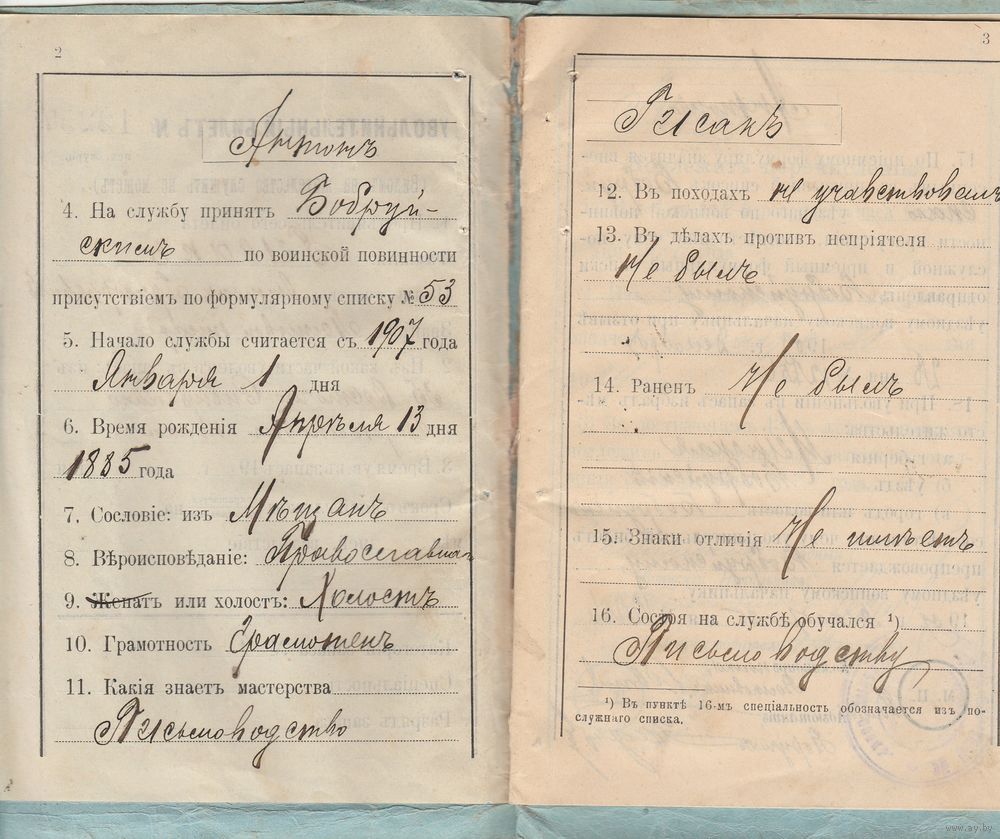 2
Антонъ
4. На службу принятъ Бобруй-
скимъ по воинской повинности
присутствіемъ по формулярному списку № 53
5. Начало службы считается съ 1907 года
Января 1 дня
6. Время рожденія Апрѣля 13 дня
1885 года
7. Сословіе: изъ Мѣщанъ
8. Вѣроисповѣданіе: Православнаго
9. Женатъ или холостъ: Холостъ
10. Грамотность Грамотенъ
11. Какія знаетъ мастерства
Письмоводство
3
Гусакъ
12. Въ походахъ не участвовалъ
13. Въ дѣлахъ противъ непріятеля
Не былъ
14. Раненъ Не былъ
15. Знаки отличія Не имѣетъ
16. Состоя на службѣ обучался ¹)
Письмоводству
¹) Въ пунктѣ 16-мъ спеціальность обозначается изъ по-
служнаго списка.
www.ay.by